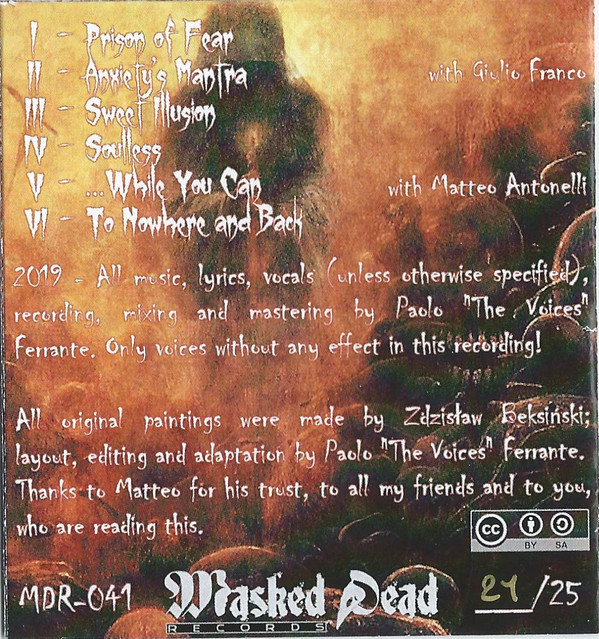 I - Prison of Fear
II - Anxiety's Mantra with Giulio Franco
III - Sweet Illusion
IV - Soulless
V - ...While You Can with Matteo Antonelli
VI - To Nowhere and Back
2019 - All music, lyrics, vocals (unless otherwise specified),
recording, mixing and mastering by Paolo "The Voices"
Ferrante. Only voices without any effect in this recording!
All original paintings were made by Zdzisław Beksiński;
layout, editing and adaptation by Paolo "The Voices" Ferrante.
Thanks to Matteo for his trust, to all my friends and to you,
who are reading this.
cc BY SA
MDR-041 Masked Dead 21/25
RECORDS